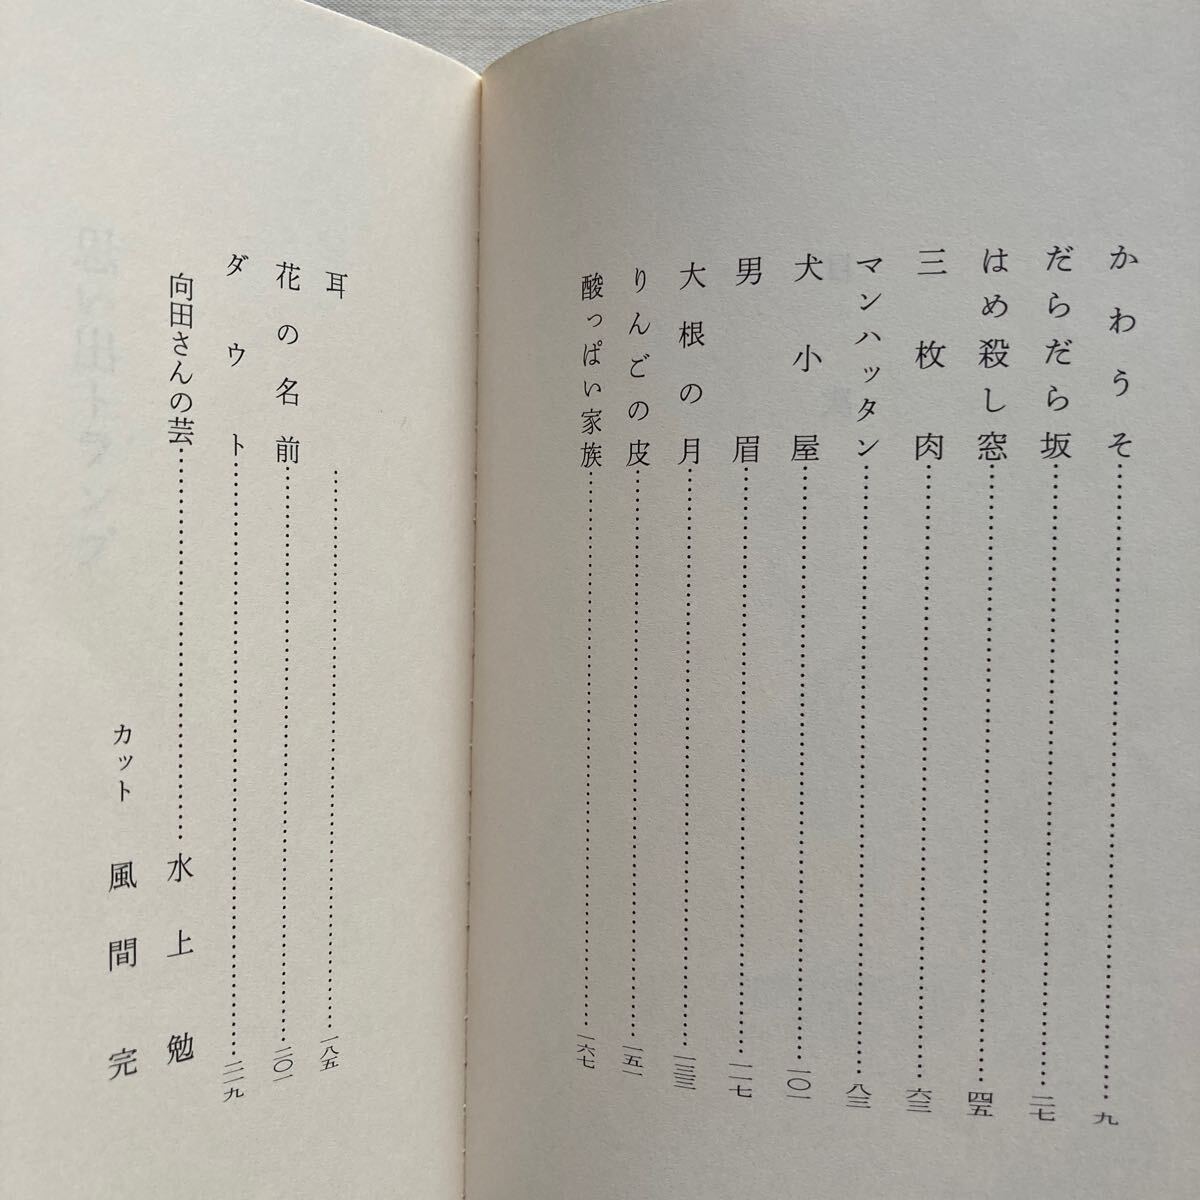 かわうそ……九
だらだら坂……二七
はめ殺し窓……四五
三枚肉……六三
マンハッタン……八三
犬小屋……一〇一
男眉……一一七
大根の月……一三三
りんごの皮……一五一
酸っぱい家族……一六七
耳……一八五
花の名前……二〇一
ダウト……二一九
向田さんの芸……水上勉
カット 風間完